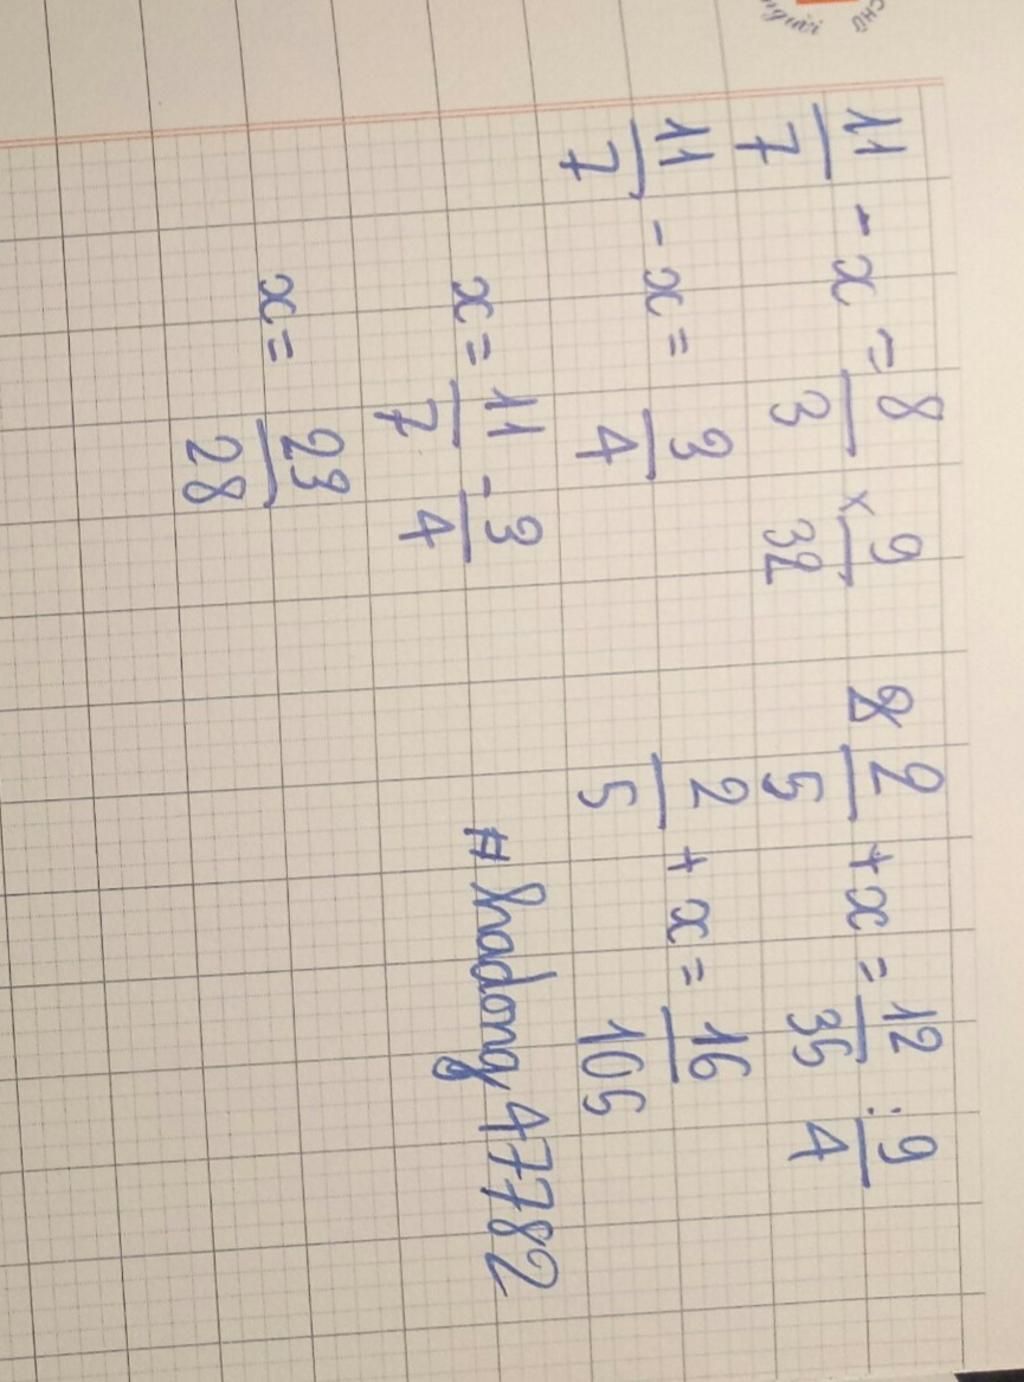 người CHỮ
11/7 - x = 8/3 x 9/32
11/7 - x = 3/4
x = 11/7 - 3/4
x = 23/28
2/5 + x = 12/35 : 9/4
2/5 + x = 16/105
#hadong47782